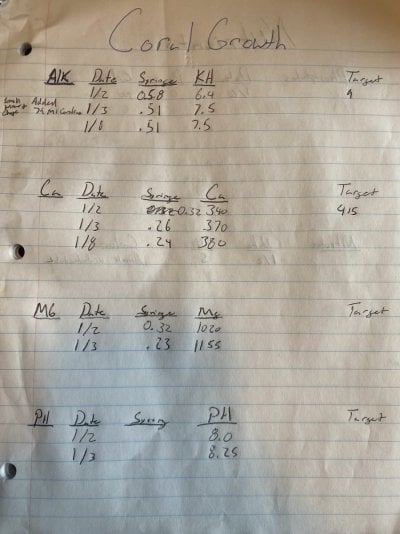 Coral Growth
Alk Date Syringe KH Target
1/2 0.58 6.4 9
Added 1/3 .51 7.5
1/8 .51 7.5
Ca Date Syringe Ca Target
1/2 0.32 340 415
1/3 .26 370
1/8 .24 380
MG Date Syringe Mg Target
1/2 0.32 1020
1/3 .23 1155
PH Date Syring PH Target
1/2 8.0
1/3 8.25